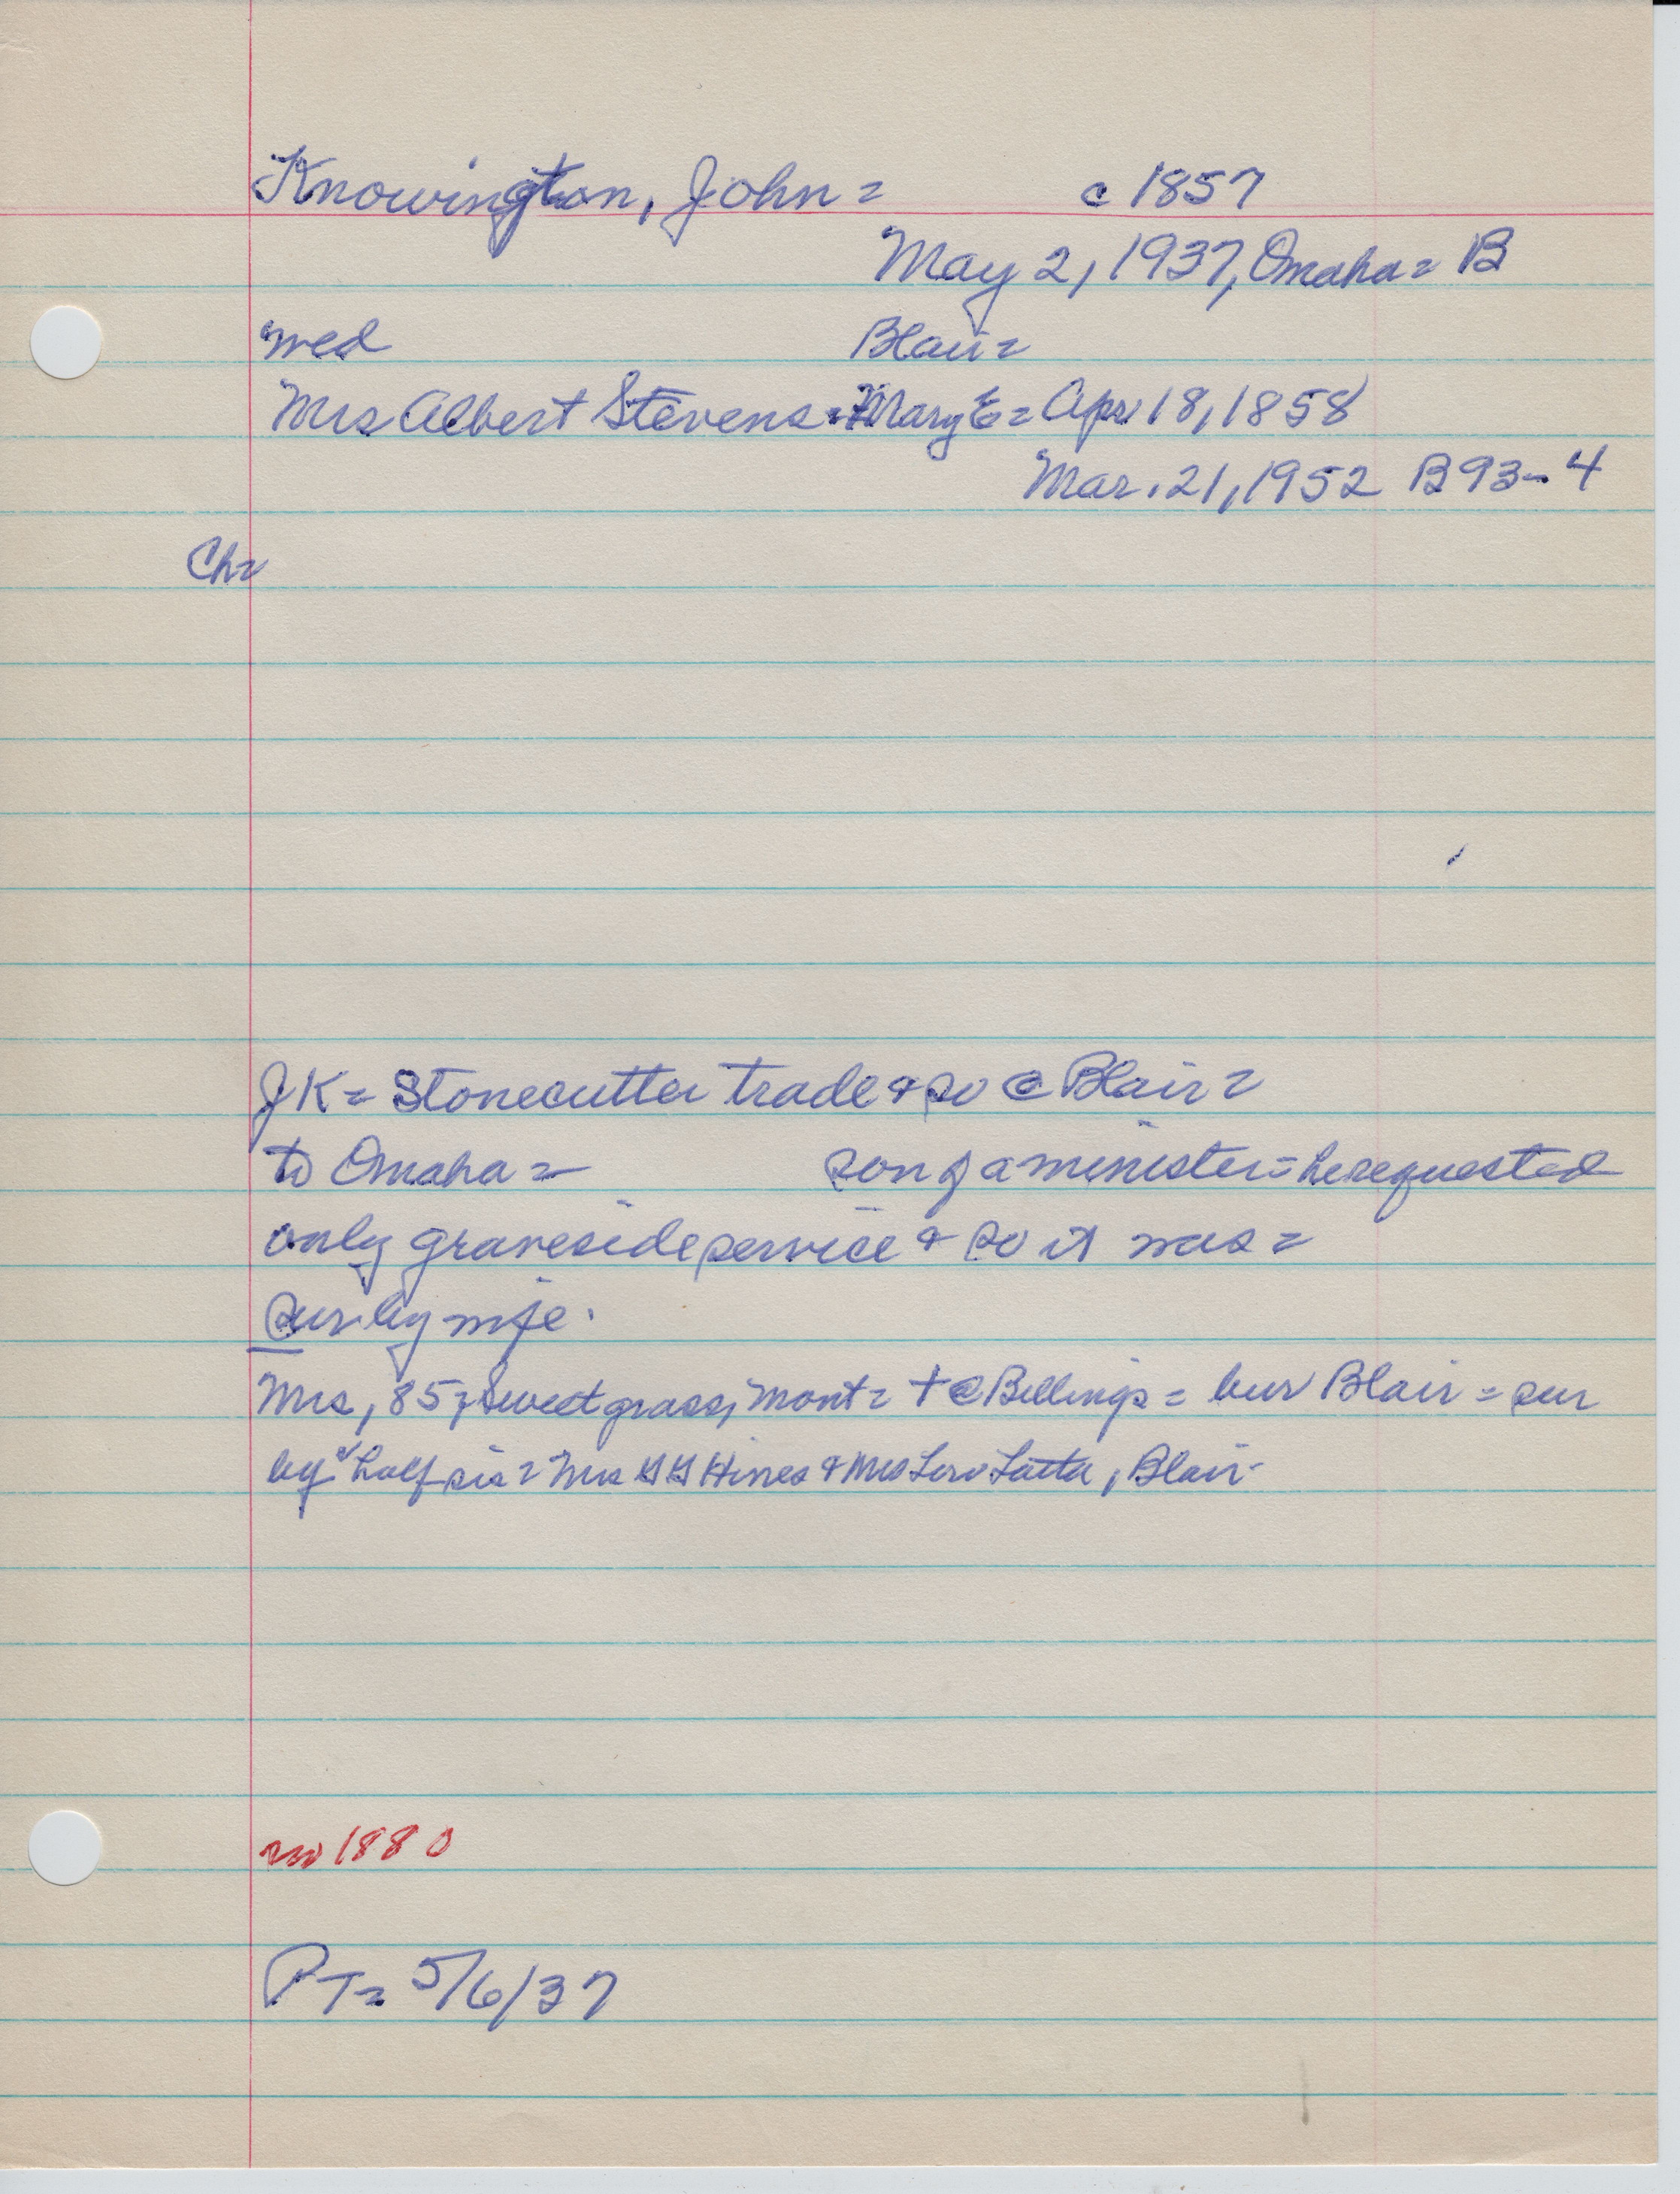 Knowington, John = c 1857
May 2, 1937, Omaha = B
wed Blair =
Mrs Albert Stevens = Mary E = Apr 18, 1858
Mar. 21, 1952 B 93-4
Ch =
JK = Stonecutter trade & so @ Blair =
to Omaha = son of a minister = he requested
only graveside service & so it was =
sur by wife.
Mrs, 85, Sweetgrass, Mont = + @ Billings = bur Blair = sur
by half sis = Mrs Hines & Mrs Latta, Blair
no 1880
PT = 5/6/37